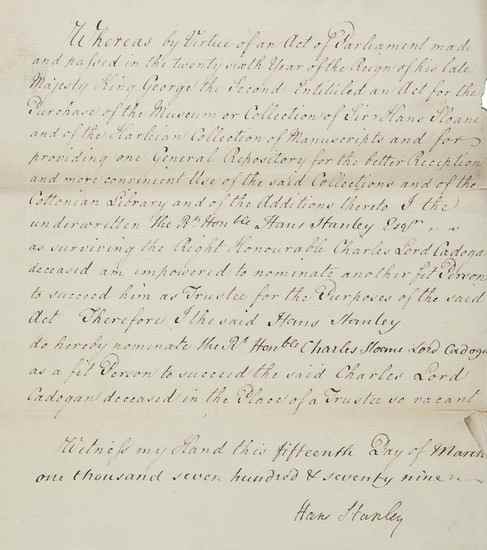 Whereas by Virtue of an Act of Parliament made
and passed in the twenty sixth Year of the Reign of his late
Majesty King George the Second Intitiled an Act for the
Purchase of the Museum or Collection of Sir Hans Sloane
and of the Harleian Collection of Manuscripts and for
providing one General Repository for the better Reception
and more convenient Use of the said Collections and of the
Cottonian Library and of the Additions thereto I the
underwritten the Rt. Honble Hans Stanley Esqr.
as surviving the Right Honourable Charles Lord Cadogan
deceased am empowered to nominate another fit Person
to succeed him as Trustee for the Purposes of the said
Act Therefore I the said Hans Stanley
do hereby nominate the Rt. Honble Charles Sloane Lord Cadogan
as a fit Person to succeed the said Charles Lord
Cadogan deceased in the Place of a Trustee so vacant
Witness my Hand this fifteenth Day of March
one thousand seven hundred & seventy nine
Hans Stanley